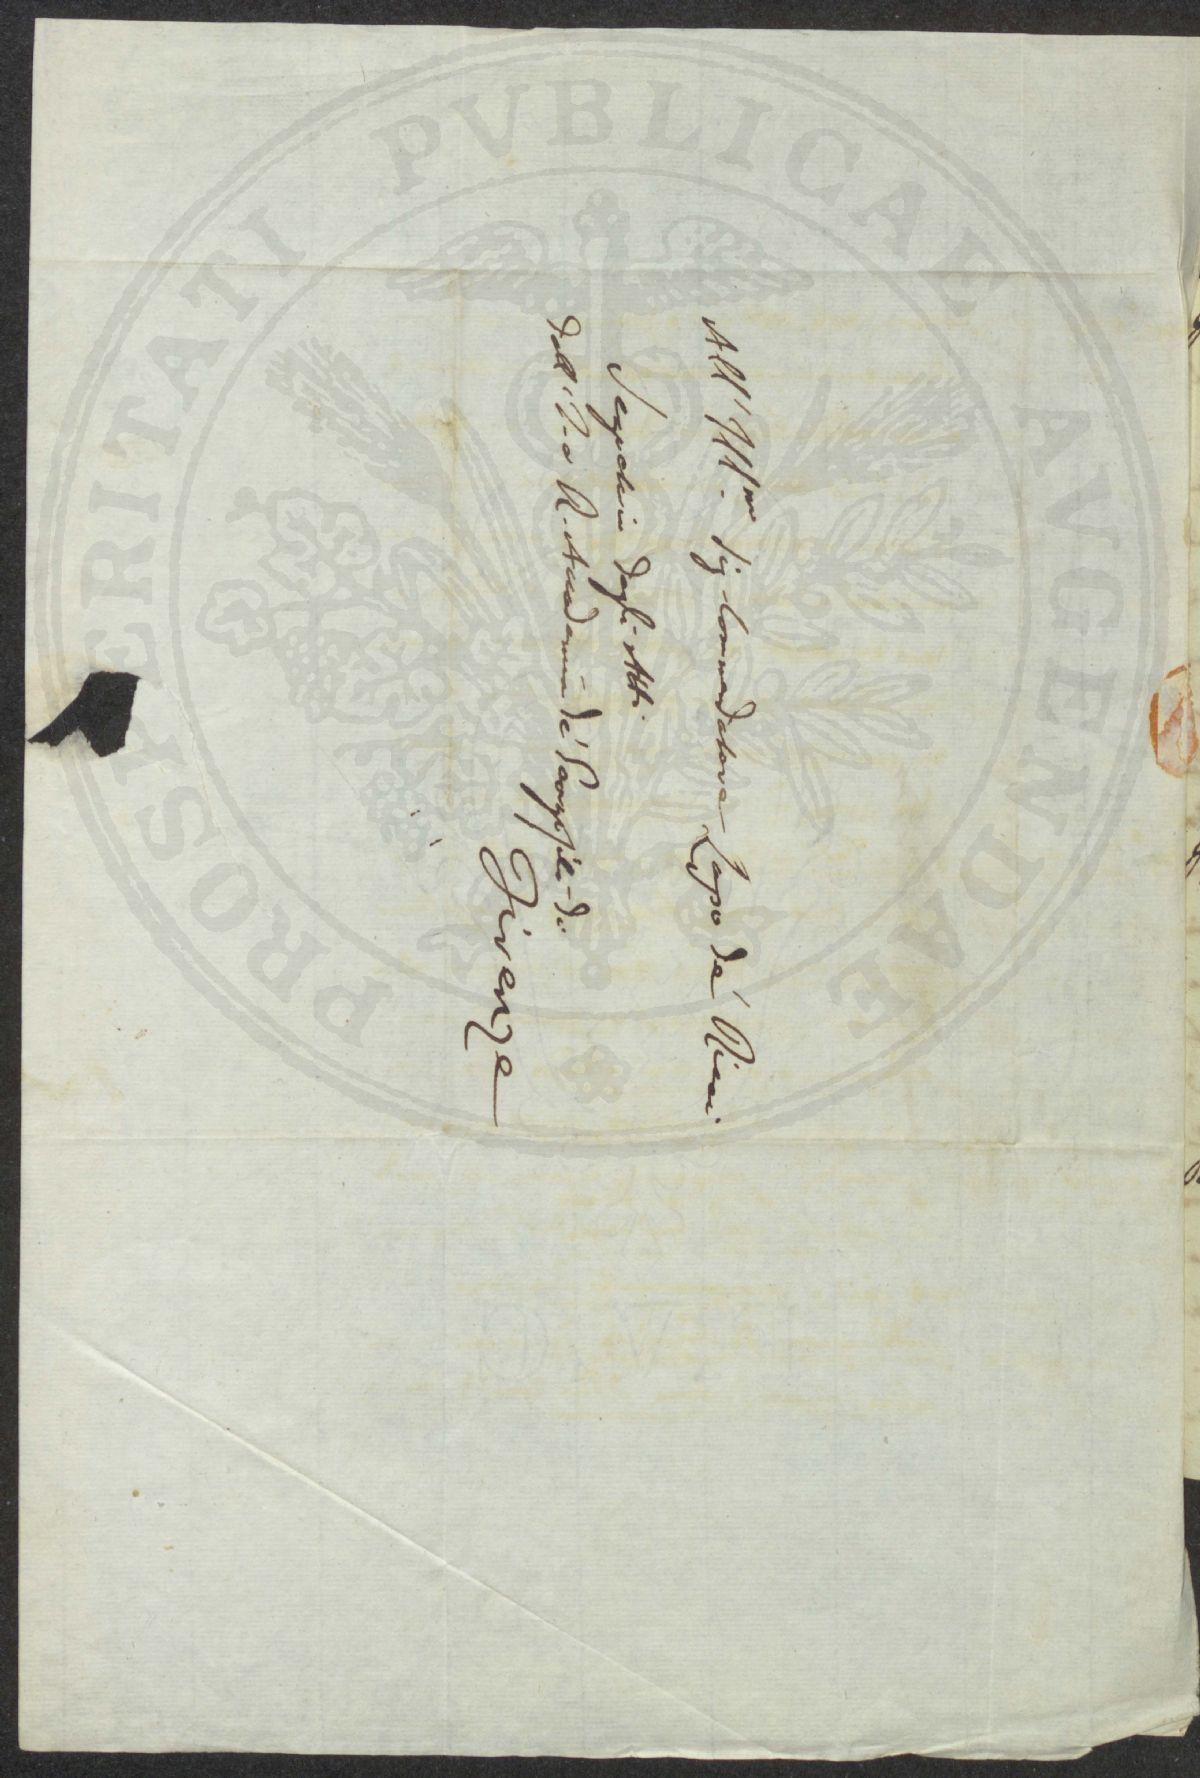 All' Ill.mo Sig. Commendatore Lapo de' Ricci
Segretario degli Atti
dell' I. e R. Accademia de' Georgofili di
Firenze
PROSPERITATI PVBLICAE AVGENDAE